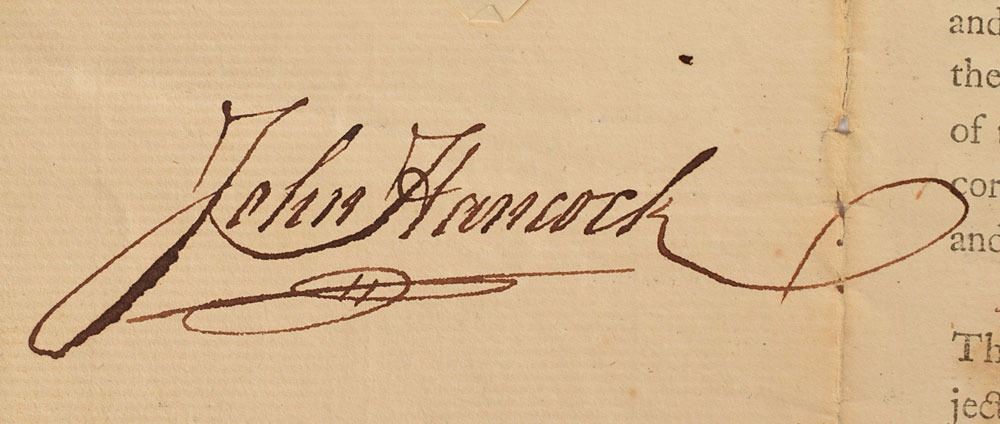 John Hancock
and
the
of
cor
and
Th
ject